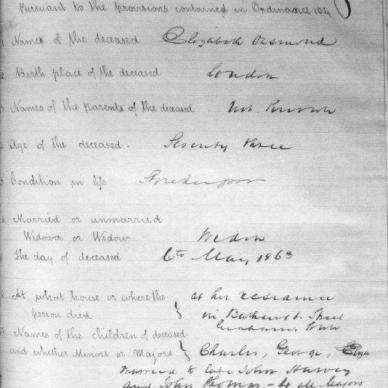 Pursuant to the provisions contained in Ordinance 104
Names of the deceased Elizabeth Desmond
2 Birth place of the deceased London
Names of the parents of the deceased Not Known
Age of the deceased. Seventy Three
Condition in life
Married or unmarried
Widower or Widow Widow
The day of deceased 6th May 1863
At what house or where the person died } at her residence
in Bathurst Street
Names of the children of deceased
and whether Minors or Majors } Charles, George, Eliza
married to late John Harvey
and John Thomas - all Majors